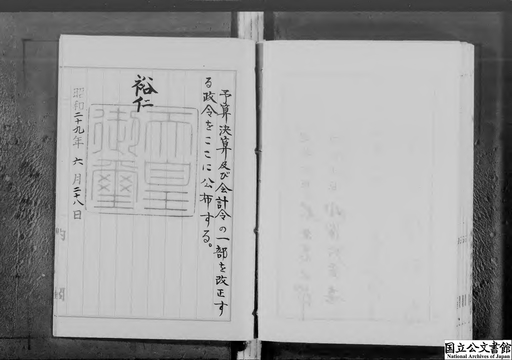 予算決算及び会計令の一部を改正す
る政令をここに公布する。
裕仁
天皇
御璽
昭和二十九年六月二十八日
内閣
国立公文書館
National Archives of Japan